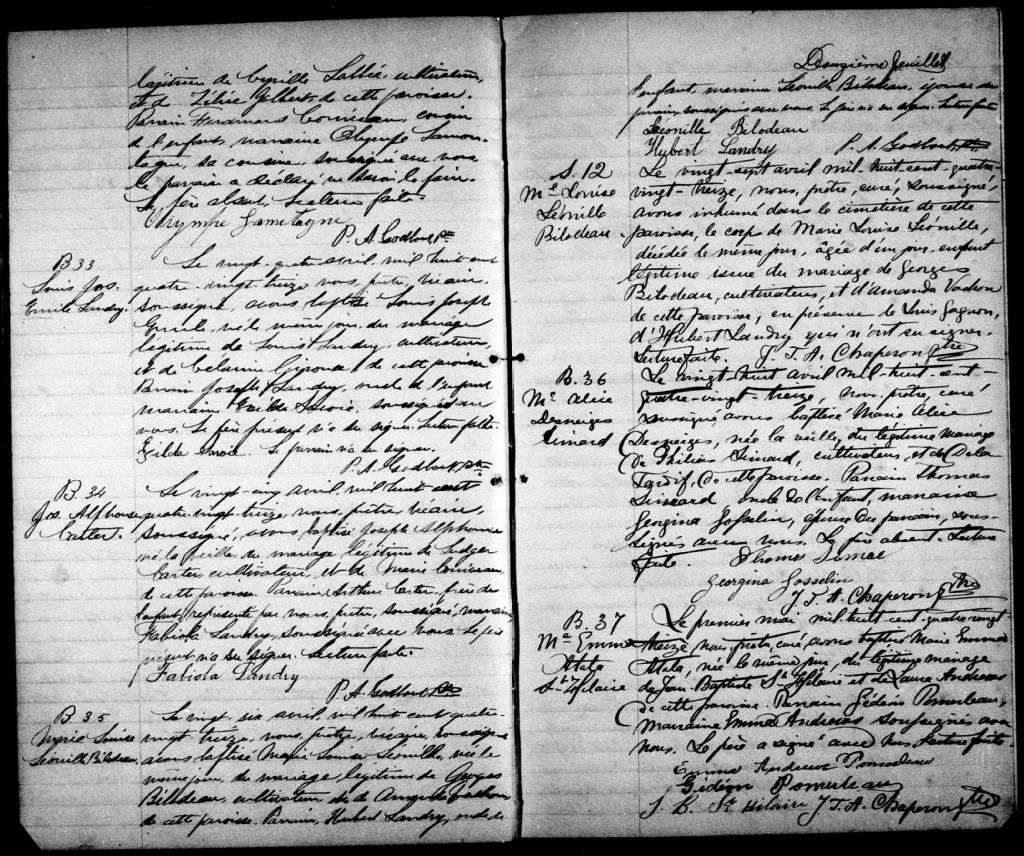 légitime de Cyrille Labbé, cultivateur,
et de Zélire Gilbert, de cette paroisse.
Parrain Ferdinand Comeau, cousin
de l'enfant, marraine Olympe Lamon-
tagne, sa cousine, soussignée avec nous
le parrain a déclaré ne savoir le faire.
Le père absent. Lecture faite.
Olympe Lamontagne
P. A. Godbout, Ptre
B 33
Louis Jos.
Emile Landry.
Le vingt-quatre avril, mil huit cent
quatre-vingt treize nous, prêtre, vicaire,
soussigné, avons baptisé Louis Joseph
Emile, né le même jour, du mariage
légitime de Louis Landry, cultivateur,
et de Gironne, de cette paroisse
Parrain Joseph Landry, oncle de l'enfant
marraine Exilda Savoie, soussignée avec
nous. Le père présent n'a su signer. Lecture faite.
Exilda Savoie. Le parrain n'a su signer.
P. A. Godbout, Ptre
B. 34
Jos. Alphonse
Carter.
Le vingt-cinq avril, mil huit cent
quatre-vingt treize, nous, prêtre, vicaire,
soussigné, avons baptisé Joseph Alphonse
né la veille, du mariage légitime de Ludger
Carter, cultivateur, et de Marie
de cette paroisse. Parrain Arthur Carter, frère de
l'enfant, représenté par nous, prêtre, soussigné, marraine
Fabiola Landry, soussignée avec nous. Le père
présent n'a su signer. Lecture faite.
Fabiola Landry
P. A. Godbout, Ptre
B. 35
Marie Louise
Léonille Bilodeau.
Le vingt-six avril, mil huit cent quatre-
vingt treize, nous, prêtre, vicaire, soussigné
avons baptisé Marie Louise Léonille, née le
même jour, du mariage légitime de Georges
Bilodeau, cultivateur, et de Amanda Vachon
de cette paroisse. Parrain, Hubert Landry, oncle de
Douzième feuillet
l'enfant, marraine Léonille Bilodeau, épouse du
parrain, soussignés avec nous. Le père n'a su signer. Lecture faite
Léonille Bilodeau
Hubert Landry P. A. Godbout, Ptre
S. 12
Me Louise
Léonille
Bilodeau.
Le vingt-sept avril mil-huit-cent-quatre-
vingt-treize, nous, prêtre, curé, soussigné,
avons inhumé dans le cimetière de cette
paroisse, le corps de Marie Louise Léonille,
décédée le même jour, âgée d'un jour, enfant
légitime issue du mariage de Georges
Bilodeau, cultivateur, et d'Amanda Vachon
de cette paroisse, en présence de Louis Gagnon,
d'Hubert Landry qui n'ont su signer.
Lecture faite. J. T. A. Chaperon Ptre
B. 36
Me Alice
Desneiges
Simard
Le vingt-huit avril mil-huit-cent-
quatre-vingt-treize, nous, prêtre, curé
soussigné, avons baptisé Marie Alice
Desneiges, née la veille, du légitime mariage
de Philias Simard, cultivateur, et de Délia
Tardif, de cette paroisse. Parrain Thomas
Simard oncle de l'enfant, marraine
Georgina Gosselin, épouse du parrain, sous-
signés avec nous. Le père absent. Lecture
faite. Thomas Simar
Georgina Gosselin
J. T. A. Chaperon Ptre
B. 37
Me Emma
Atala
St Hilaire
Le premier mai mil-huit-cent-quatre-vingt
treize, nous, prêtre, curé, avons baptisé Marie Emma
Atala, née le même jour, du légitime mariage
de Jean-Baptiste St Hilaire et de Laura Andrews
de cette paroisse. Parrain Gédéon Pomerleau,
marraine Emma Andrews soussignés avec
nous. Le père a signé avec nous. Lecture faite.
Emma Andrews Pomerleau
Gédéon Pomerleau
J. B. St Hilaire J. T. A. Chaperon Ptre